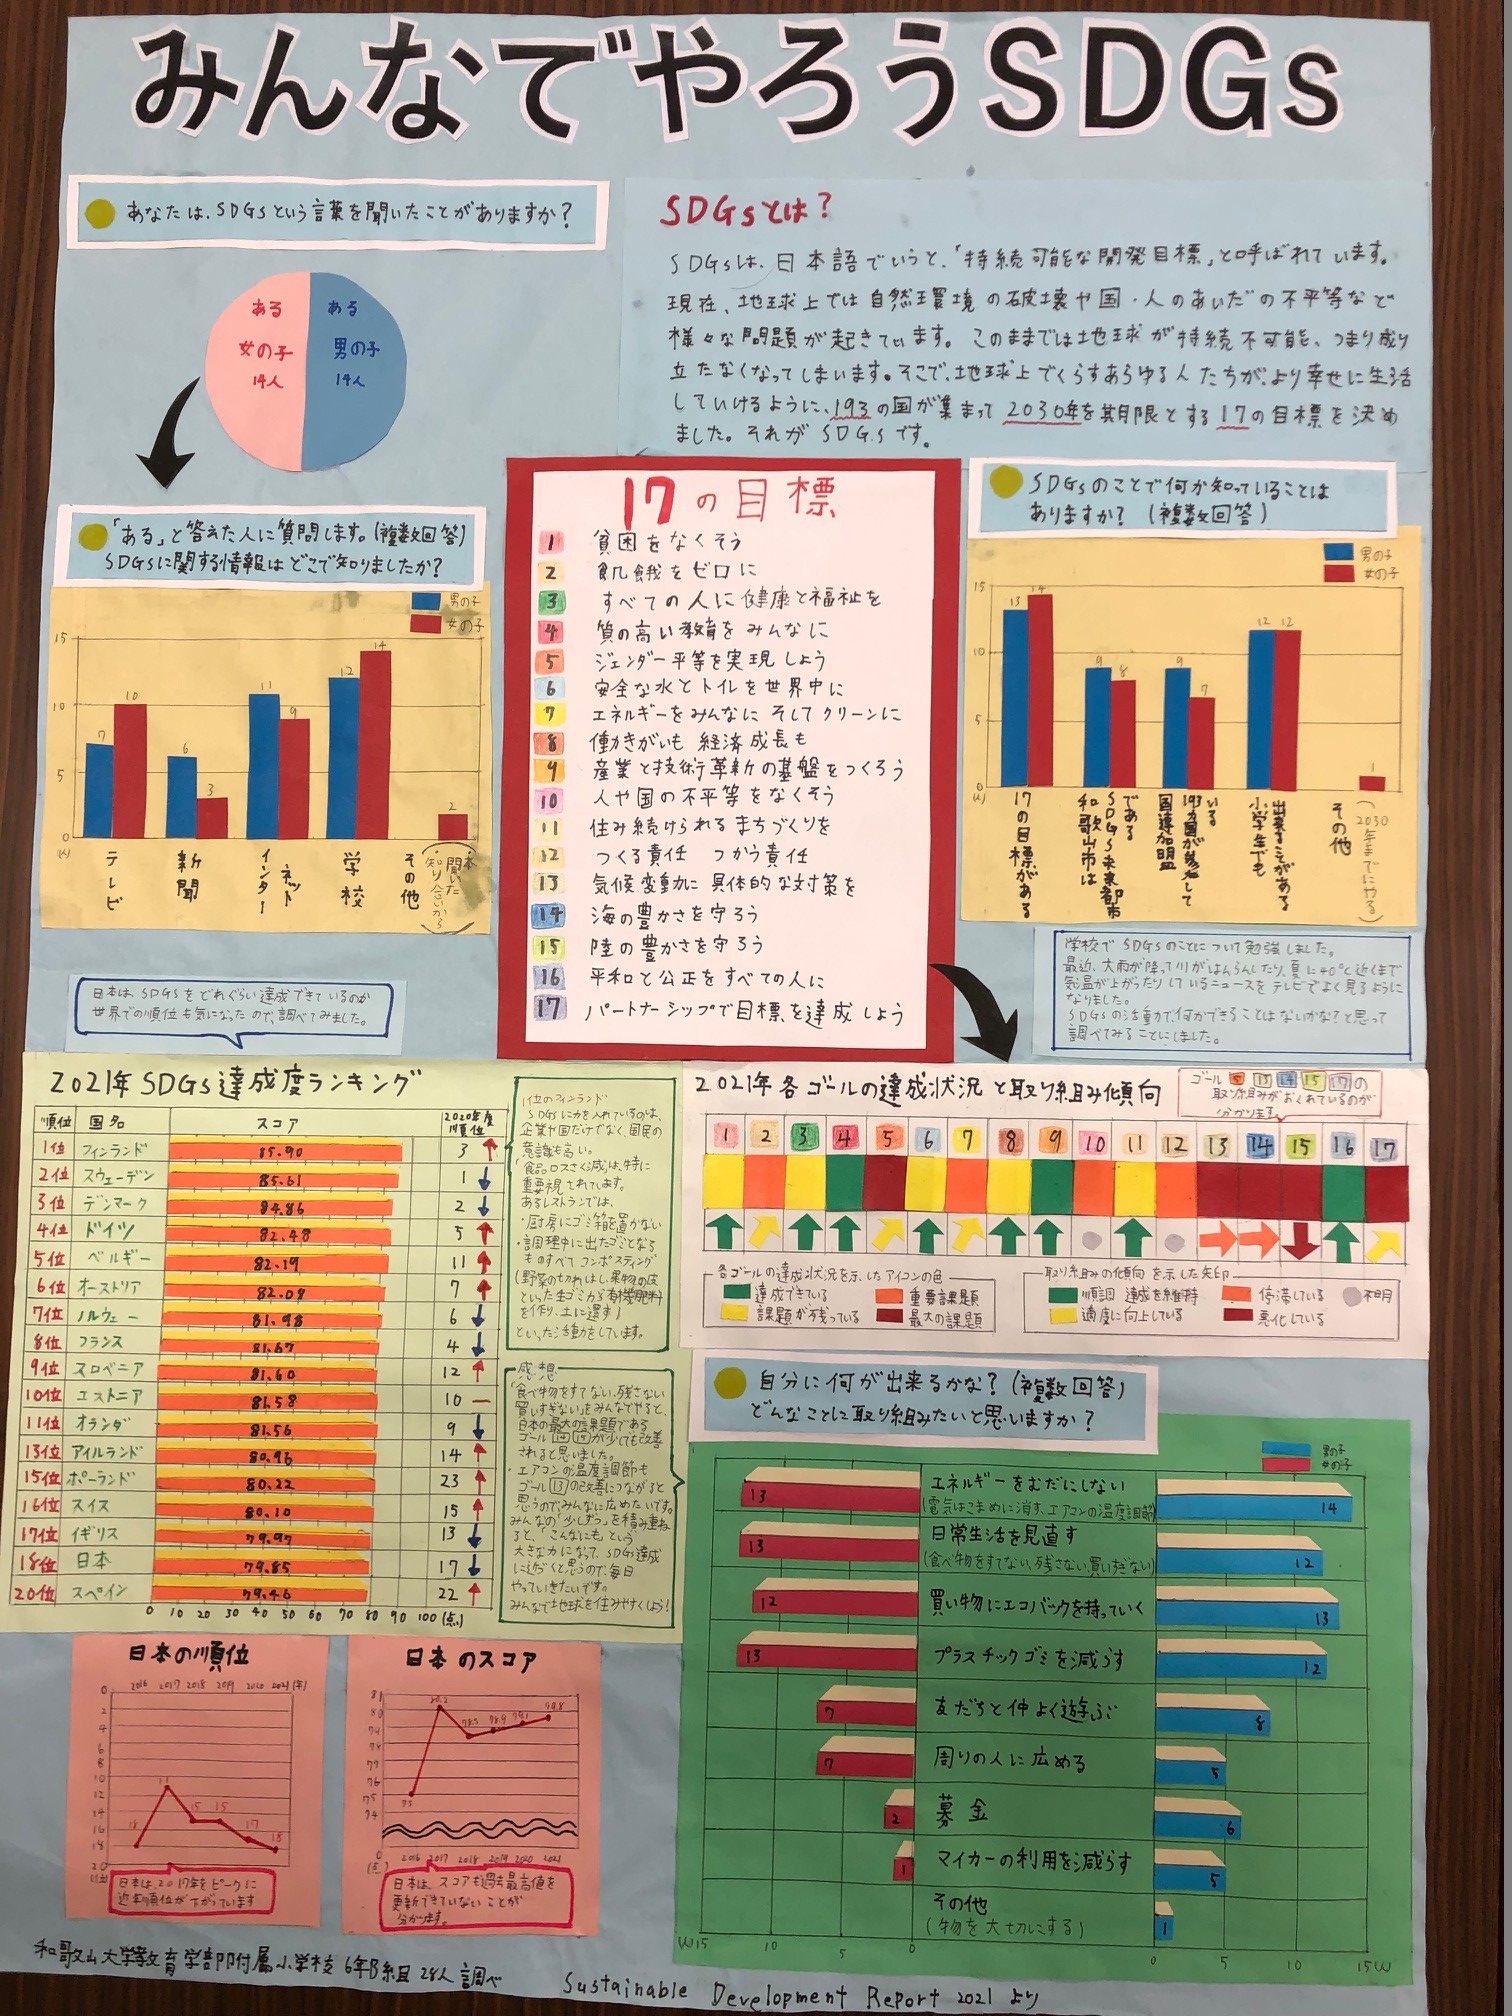 みんなでやろうSDGs
あなたは、SDGsという言葉を聞いたことがありますか?
ある
女の子
14人
ある
男の子
14人
SDGsとは?
SDGsは、日本語でいうと、「持続可能な開発目標」と呼ばれています。
現在、地球上では自然環境の破壊や国・人のあいだの不平等など
様々な問題が起きています。このままでは地球が持続不可能、つまり成り
立たなくなってしまいます。そこで、地球上でくらすあらゆる人たちが、より幸せに生活
していけるように、193の国が集まって2030年を期限とする17の目標を決め
ました。それがSDGsです。
「ある」と答えた人に質問します。(複数回答)
SDGsに関する情報はどこで知りましたか?
男の子
女の子
15
10
5
0
(人)
7
10
6
3
11
9
12
14
2
テレビ
新聞
インターネット
学校
その他
17の目標
1 貧困をなくそう
2 飢餓をゼロに
3 すべての人に健康と福祉を
4 質の高い教育をみんなに
5 ジェンダー平等を実現しよう
6 安全な水とトイレを世界中に
7 エネルギーをみんなに そしてクリーンに
8 働きがいも 経済成長も
9 産業と技術革新の基盤をつくろう
10 人や国の不平等をなくそう
11 住み続けられるまちづくりを
12 つくる責任 つかう責任
13 気候変動に具体的な対策を
14 海の豊かさを守ろう
15 陸の豊かさを守ろう
16 平和と公正をすべての人に
17 パートナーシップで目標を達成しよう
SDGsのことで何か知っていることは
ありますか?(複数回答)
男の子
女の子
15
10
5
0
(人)
13
14
9
8
9
7
12
12
1
17の目標がある
和歌山市は
SDGs未来都市
である
国連加盟
193カ国が参加して
いる
小学生でも
出来ることがある
その他
(2030年までにやる)
学校でSDGsのことについて勉強しました。
最近、大雨が降って川がはんらんしたり、夏に40℃近くまで
気温が上がったりしているニュースをテレビでよく見るように
なりました。
SDGsの活動で、何かできることはないかな?と思って
調べてみることにしました。
日本は、SDGsをどれぐらい達成できているのか
世界での順位も気になったので、調べてみました。
2021年 SDGs達成度ランキング
順位 国名 スコア 2020年度順位
1位 フィンランド 85.90 3
2位 スウェーデン 85.61 1
3位 デンマーク 84.86 2
4位 ドイツ 82.48 5
5位 ベルギー 82.19 11
6位 オーストリア 82.08 7
7位 ノルウェー 81.98 6
8位 フランス 81.67 4
9位 スロベニア 81.60 12
10位 エストニア 81.58 10
11位 オランダ 81.56 9
13位 アイルランド 80.96 14
15位 ポーランド 80.22 23
16位 スイス 80.10 15
17位 イギリス 79.97 13
18位 日本 79.85 17
20位 スペイン 79.46 22
0 10 20 30 40 50 60 70 80 90 100 (点)
1位のフィンランド
SDGsに力を入れているのは、
企業や国だけでなく、国民の
意識も高い。
「食品ロスさく減」は、特に
重要視されています。
あるレストランでは、
・厨房にゴミ箱を置かない
・調理中に出たゴミとなる
ものすべてコンポスティング
(野菜の切れはし、果物の皮
といった生ゴミから有機肥料
を作り、土に還す)
といった活動をしています。
感想
「食べ物をすてない、残さない
買いすぎない」をみんなでやると、
日本の最大の課題である
ゴール14 15が少しでも改善
されると思いました。
・エアコンの温度調節も
ゴール13の改善につながると
思うので、みんなに広めたいです。
みんなの「少しずつ」を積み重ね
ると、「こんなにも」という
大きな力になって、SDGs達成
に近づくと思うので、毎日
やっていきたいです。
みんなで地球を住みやすくしよう!
2021年 各ゴールの達成状況と取り組み傾向
ゴール 5 13 14 15 17の
取り組みがおくれているのが
分かります。
1 2 3 4 5 6 7 8 9 10 11 12 13 14 15 16 17
各ゴールの達成状況を示したアイコンの色
達成できている
重要課題
課題が残っている
最大の課題
取り組みの傾向を示した矢印
順調 達成を維持
停滞している
不明
適度に向上している
悪化している
自分に何が出来るかな?(複数回答)
どんなことに取り組みたいと思いますか?
男の子
女の子
13 エネルギーをむだにしない 14
(電気はこまめに消す、エアコンの温度調節)
13 日常生活を見直す 12
(食べ物をすてない、残さない、買いすぎない)
12 買い物にエコバックを持っていく 13
13 プラスチックゴミを減らす 12
7 友だちと仲よく遊ぶ 8
7 周りの人に広める 5
2 募金 6
1 マイカーの利用を減らす 5
その他 1
(物を大切にする)
(人)15 10 5 0 0 5 10 15(人)
日本の順位
2016 2017 2018 2019 2020 2021 (年)
0
2
4
6
8
10
12
14
16
18
20
(位)
18
11
15
15
17
18
日本は、2017年をピークに
近年順位が下がっています
日本のスコア
81
80
79
78
77
76
75
74
0
(点)
75
80.2
78.5
78.9
79.1
79.8
2016 2017 2018 2019 2020 2021
日本は、スコアも過去最高値を
更新できていないことが
分かります。
和歌山大学教育学部附属小学校 6年B組 28人調べ
Sustainable Development Report 2021 より